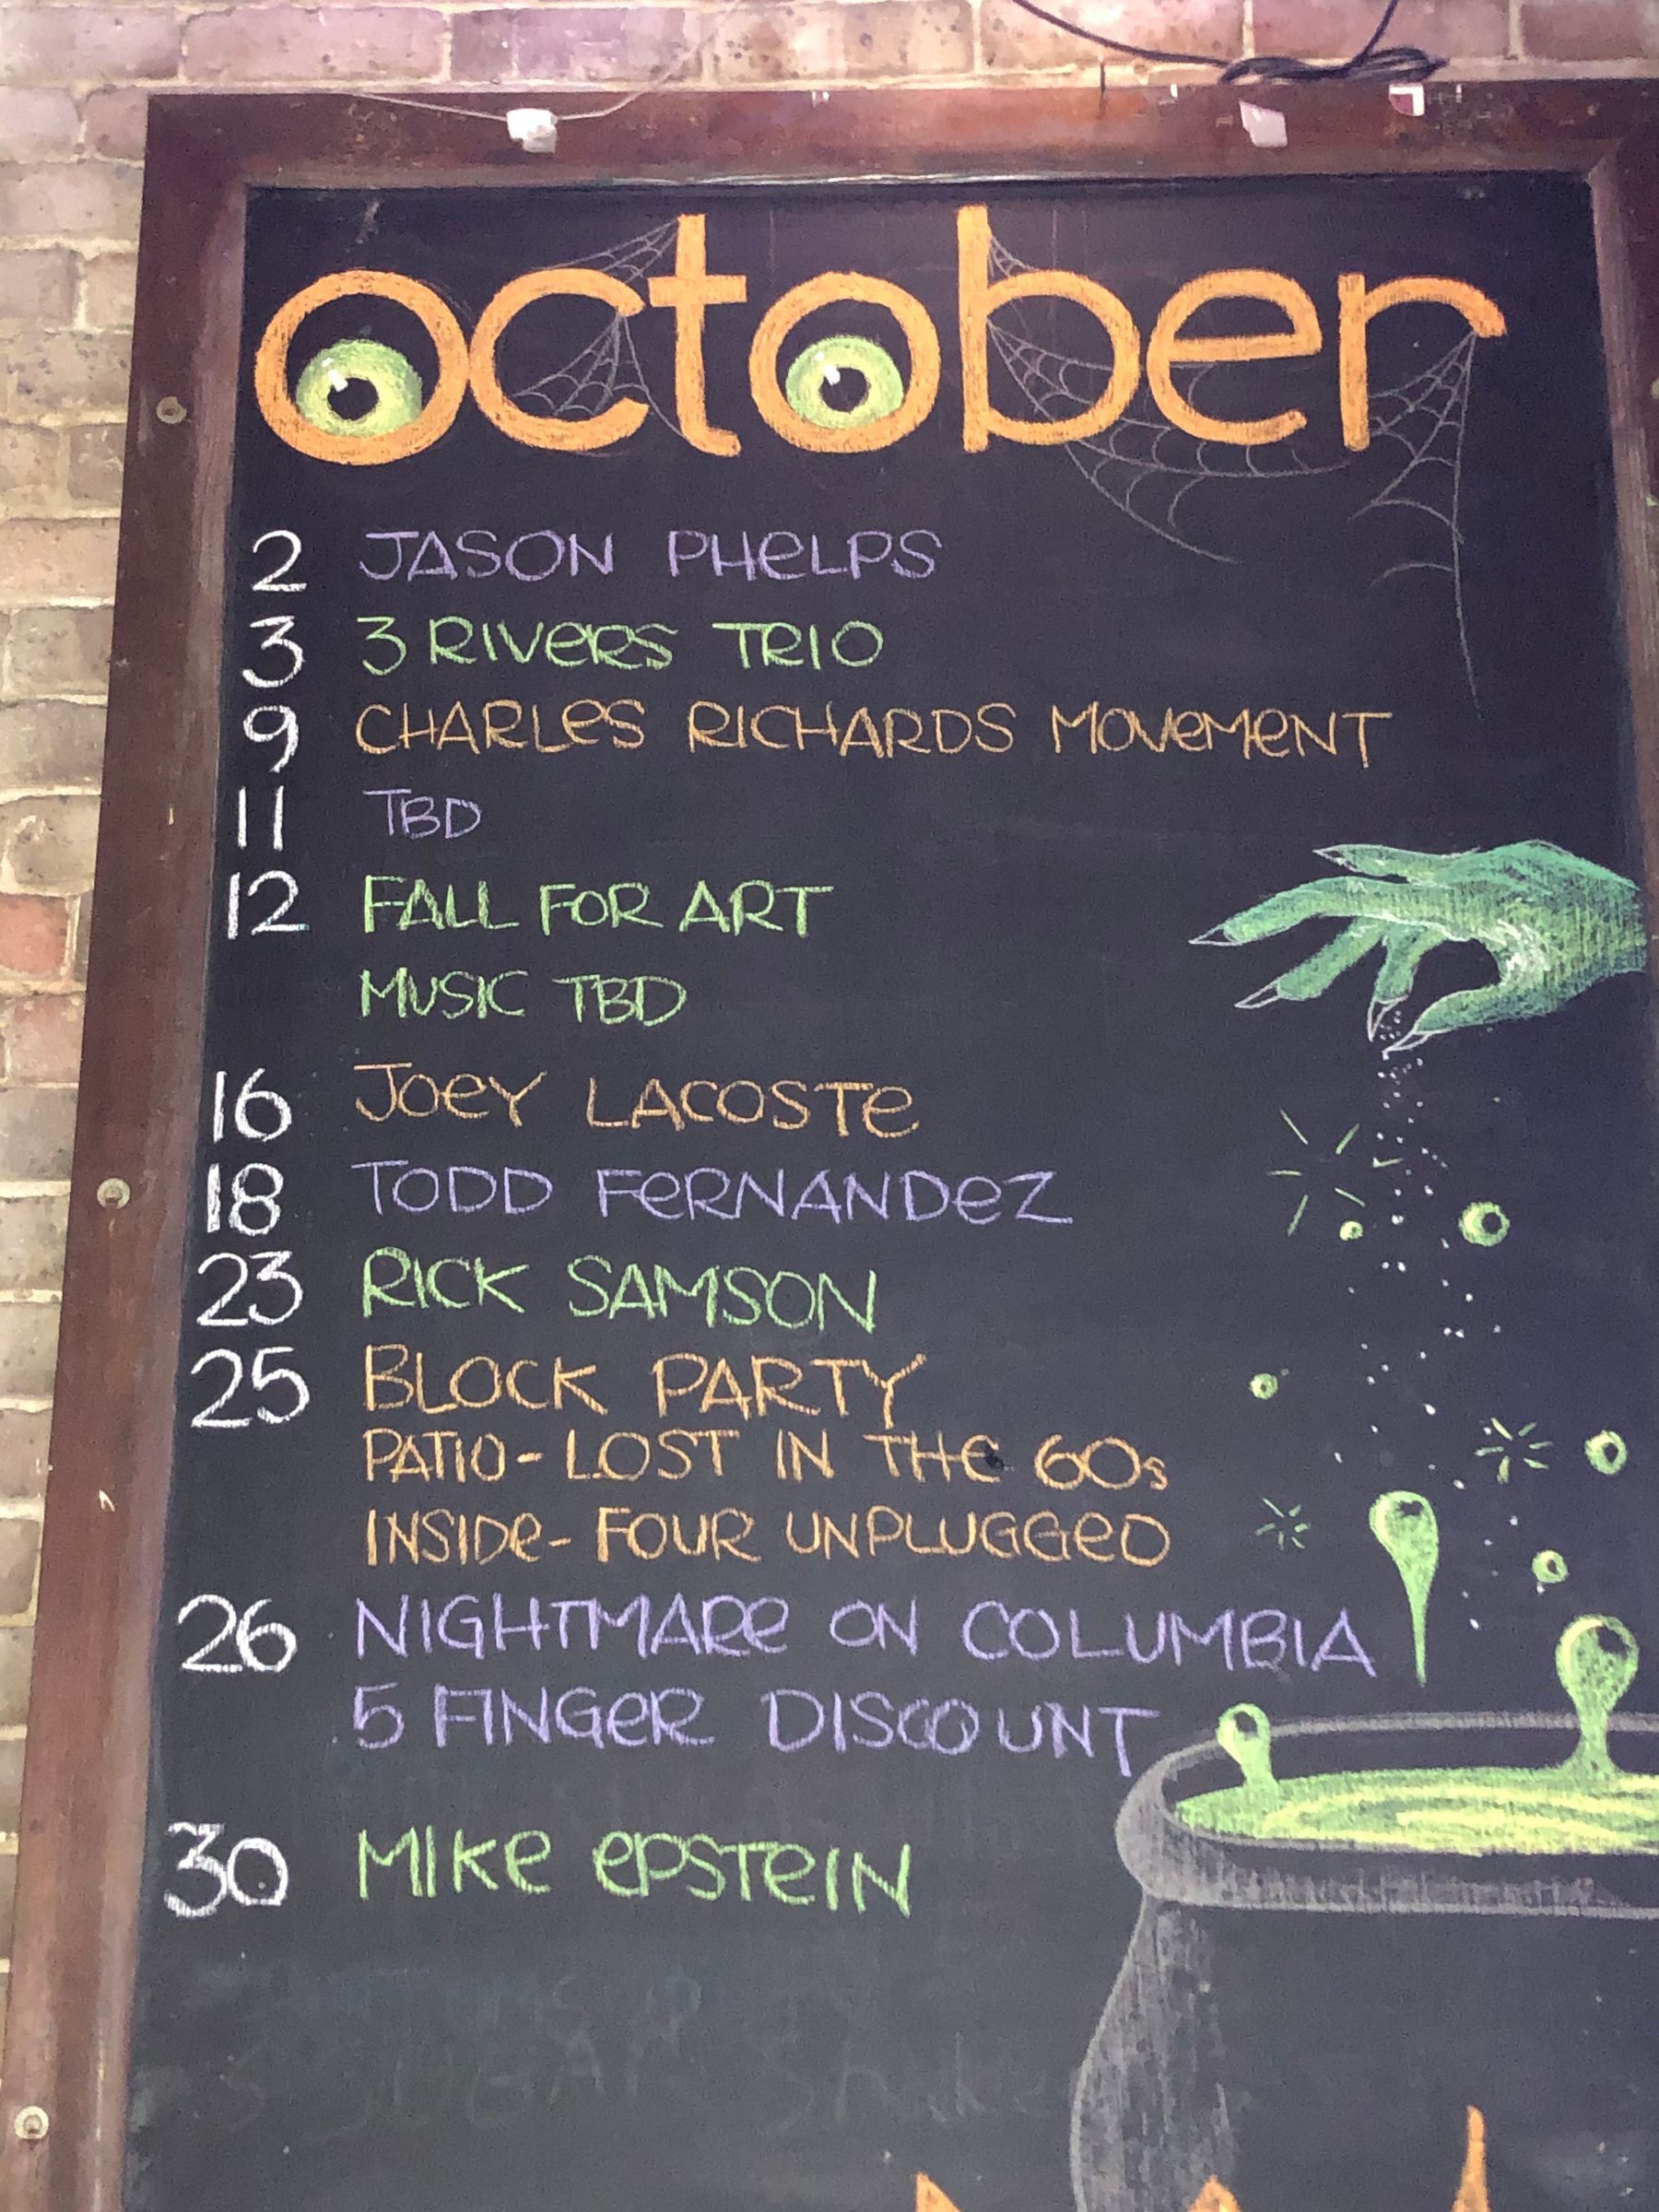 october
2 JASON PHELPS
3 3 RIVERS TRIO
9 CHARLES RICHARDS MOVEMENT
11 TBD
12 FALL FOR ART
MUSIC TBD
16 JOEY LACOSTE
18 TODD FERNANDEZ
23 RICK SAMSON
25 BLOCK PARTY
PATIO- LOST IN THE 60s
INSIDE- FOUR UNPLUGGED
26 NIGHTMARE ON COLUMBIA
5 FINGER DISCOUNT
30 MIKE EPSTEIN